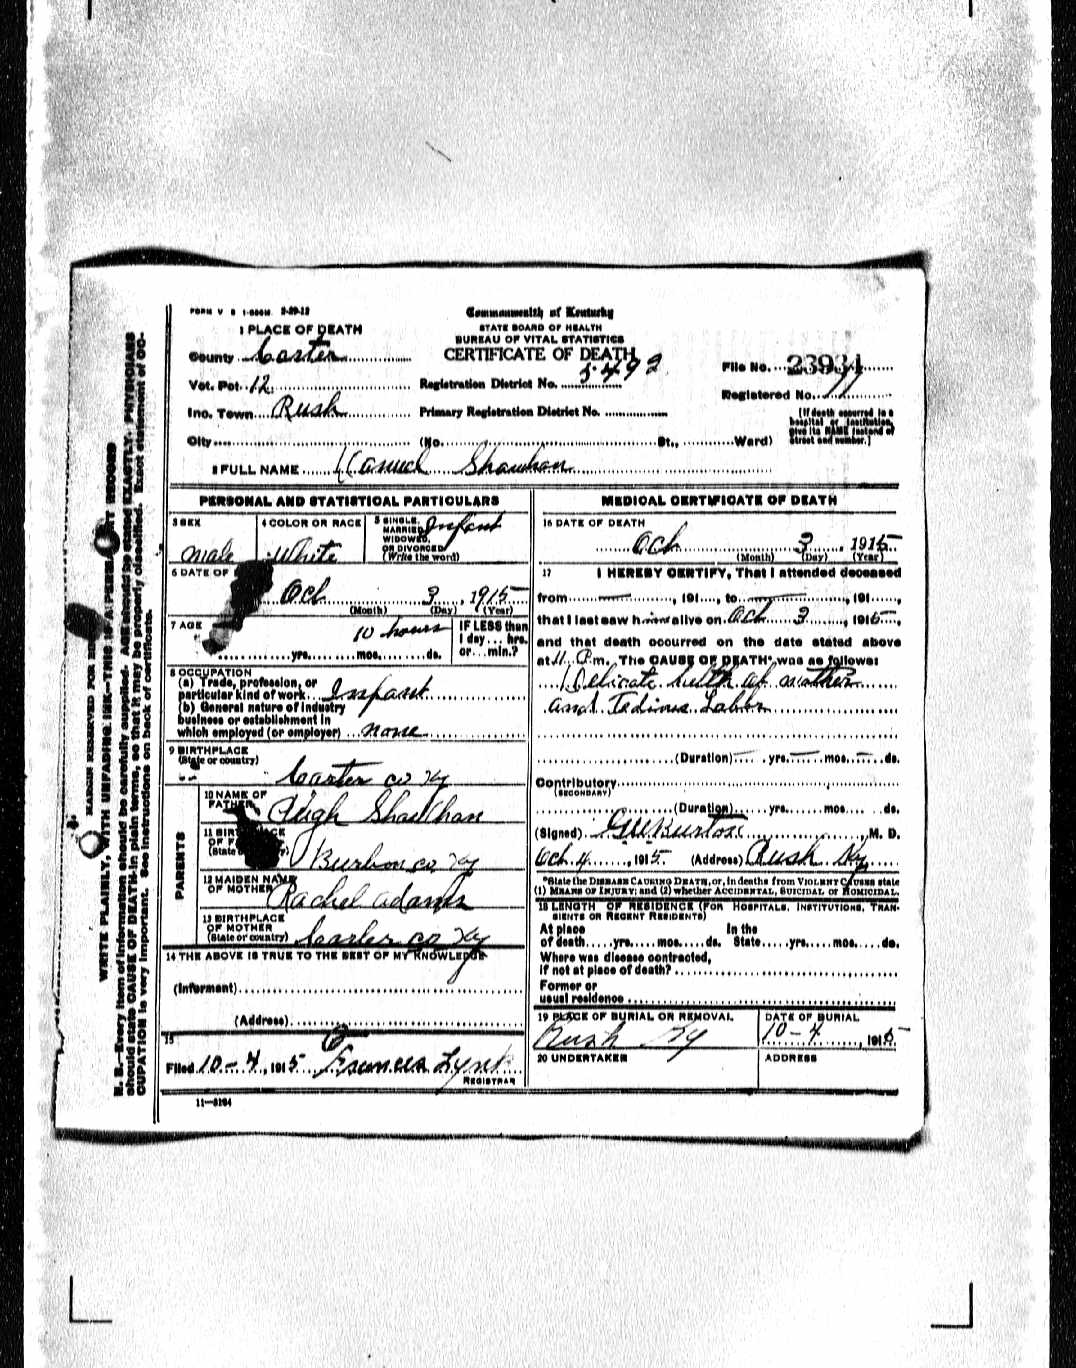 FORM V S 1-500M 2-29-12
Commonwealth of Kentucky
STATE BOARD OF HEALTH
BUREAU OF VITAL STATISTICS
CERTIFICATE OF DEATH
1 PLACE OF DEATH
County Carter
Vot. Pct. 12
Inc. Town Rush
City (No. St., Ward)
Registration District No. 5492
Primary Registration District No.
File No. 23934
Registered No. 77
[If death occurred in a
hospital or institution,
give its NAME instead of
street and number.]
2 FULL NAME Shawhan
PERSONAL AND STATISTICAL PARTICULARS
3 SEX
male
4 COLOR OR RACE
White
5 SINGLE,
MARRIED,
WIDOWED,
OR DIVORCED
(Write the word)
Infant
6 DATE OF
Oct 3, 1915
(Month) (Day) (Year)
7 AGE
10 hours
yrs. mos. ds.
IF LESS than
1 day... hrs.
or... min.?
8 OCCUPATION
(a) Trade, profession, or
particular kind of work Infant
(b) General nature of industry
business or establishment in
which employed (or employer) none
9 BIRTHPLACE
(State or country)
Carter co Ky
PARENTS
10 NAME OF
FATHER
Hugh Shawhan
11 BIRTHPLACE
OF F
(State
Burbon co Ky
12 MAIDEN NAME
OF MOTHER
Rachel Adams
13 BIRTHPLACE
OF MOTHER
(State or country)
Carter co Ky
14 THE ABOVE IS TRUE TO THE BEST OF MY KNOWLEDGE
(Informant)
(Address)
15
Filed 10-4, 1915 Frances
REGISTRAR
11-3184
MEDICAL CERTIFICATE OF DEATH
16 DATE OF DEATH
Oct 3, 1915
(Month) (Day) (Year)
17 I HEREBY CERTIFY, That I attended deceased
from , 191..., to , 191...,
that I last saw him alive on Oct 3, 1915,
and that death occurred on the date stated above
at 11 P.m. The CAUSE OF DEATH* was as follows:
Delicate helth of mother
and Tedious Labor
(Duration) yrs. mos. ds.
Contributory
(SECONDARY)
(Duration) yrs. mos. ds.
(Signed) Burton, M. D.
Oct 4, 1915. (Address) Rush Ky
*State the DISEASE CAUSING DEATH, or, in deaths from VIOLENT CAUSES state
(1) MEANS OF INJURY; and (2) whether ACCIDENTAL, SUICIDAL or HOMICIDAL.
18 LENGTH OF RESIDENCE (FOR HOSPITALS, INSTITUTIONS, TRAN-
SIENTS OR RECENT RESIDENTS)
At place In the
of death yrs. mos. ds. State yrs. mos. ds.
Where was disease contracted,
if not at place of death?
Former or
usual residence
19 PLACE OF BURIAL OR REMOVAL
Rush Ky
DATE OF BURIAL
10-4, 1915
20 UNDERTAKER
ADDRESS
MARGIN RESERVED FOR
WRITE PLAINLY, WITH UNFADING INK—THIS IS A PERMANENT RECORD
N. B.—Every item of information should be carefully supplied. AGE should be stated EXACTLY. PHYSICIANS
should state CAUSE OF DEATH in plain terms, so that it may be properly classified. Exact statement of OC-
CUPATION is very important. See instructions on back of certificate.